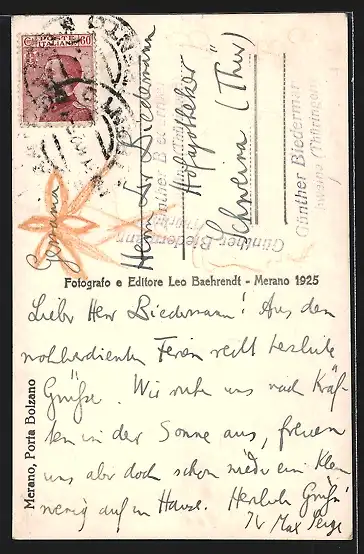 POSTE ITALIANE 60
Germania
Herrn Dr Biedermann
Hofapotheker
Schweina (Thür)
Günther Biedermann
Schweina (Thüringen)
Günther Biedermann
Günther Biedermann
Fotografo e Editore Leo Baehrendt - Merano 1925
Merano, Porta Bolzano
Lieber Herr Biedermann! Aus den
wohlverdienten Ferien recht herzliche
Grüße. Wir ruhen uns nach Kräf-
ten in der Sonne aus, freuen
uns aber doch schon wieder ein klein
wenig auf zu Hause. Herzliche Grüße
Ihr Max